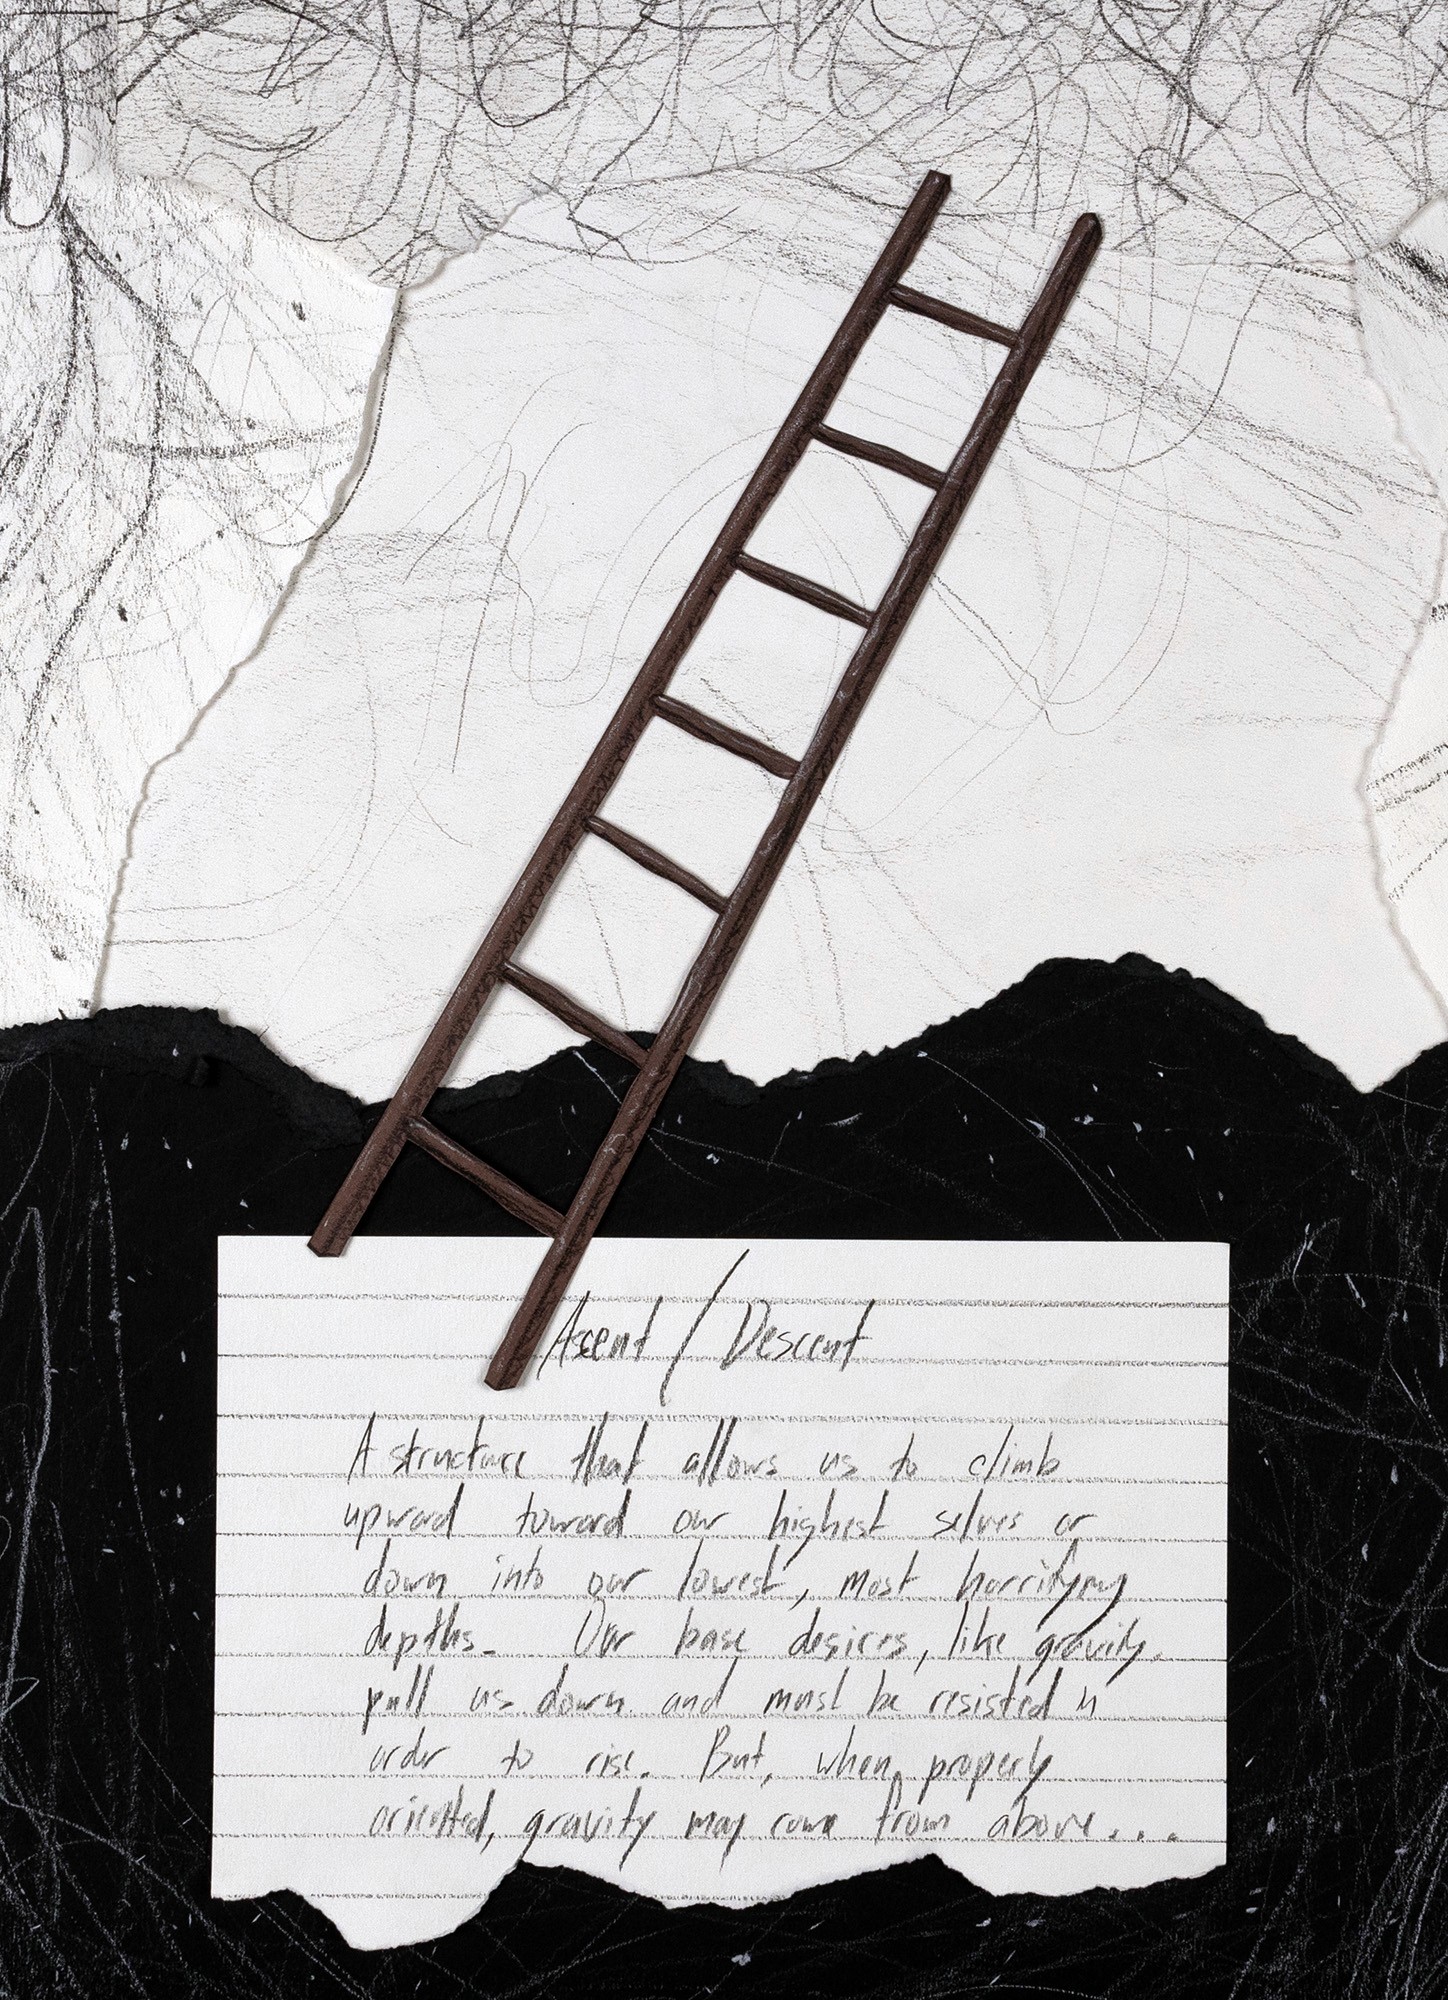 Ascent / Descent
A structure that allows us to climb
upward toward our highest selves or
down into our lowest, most horrifying
depths. Our base desires, like gravity,
pull us down and must be resisted in
order to rise. But, when properly
oriented, gravity may come from above...